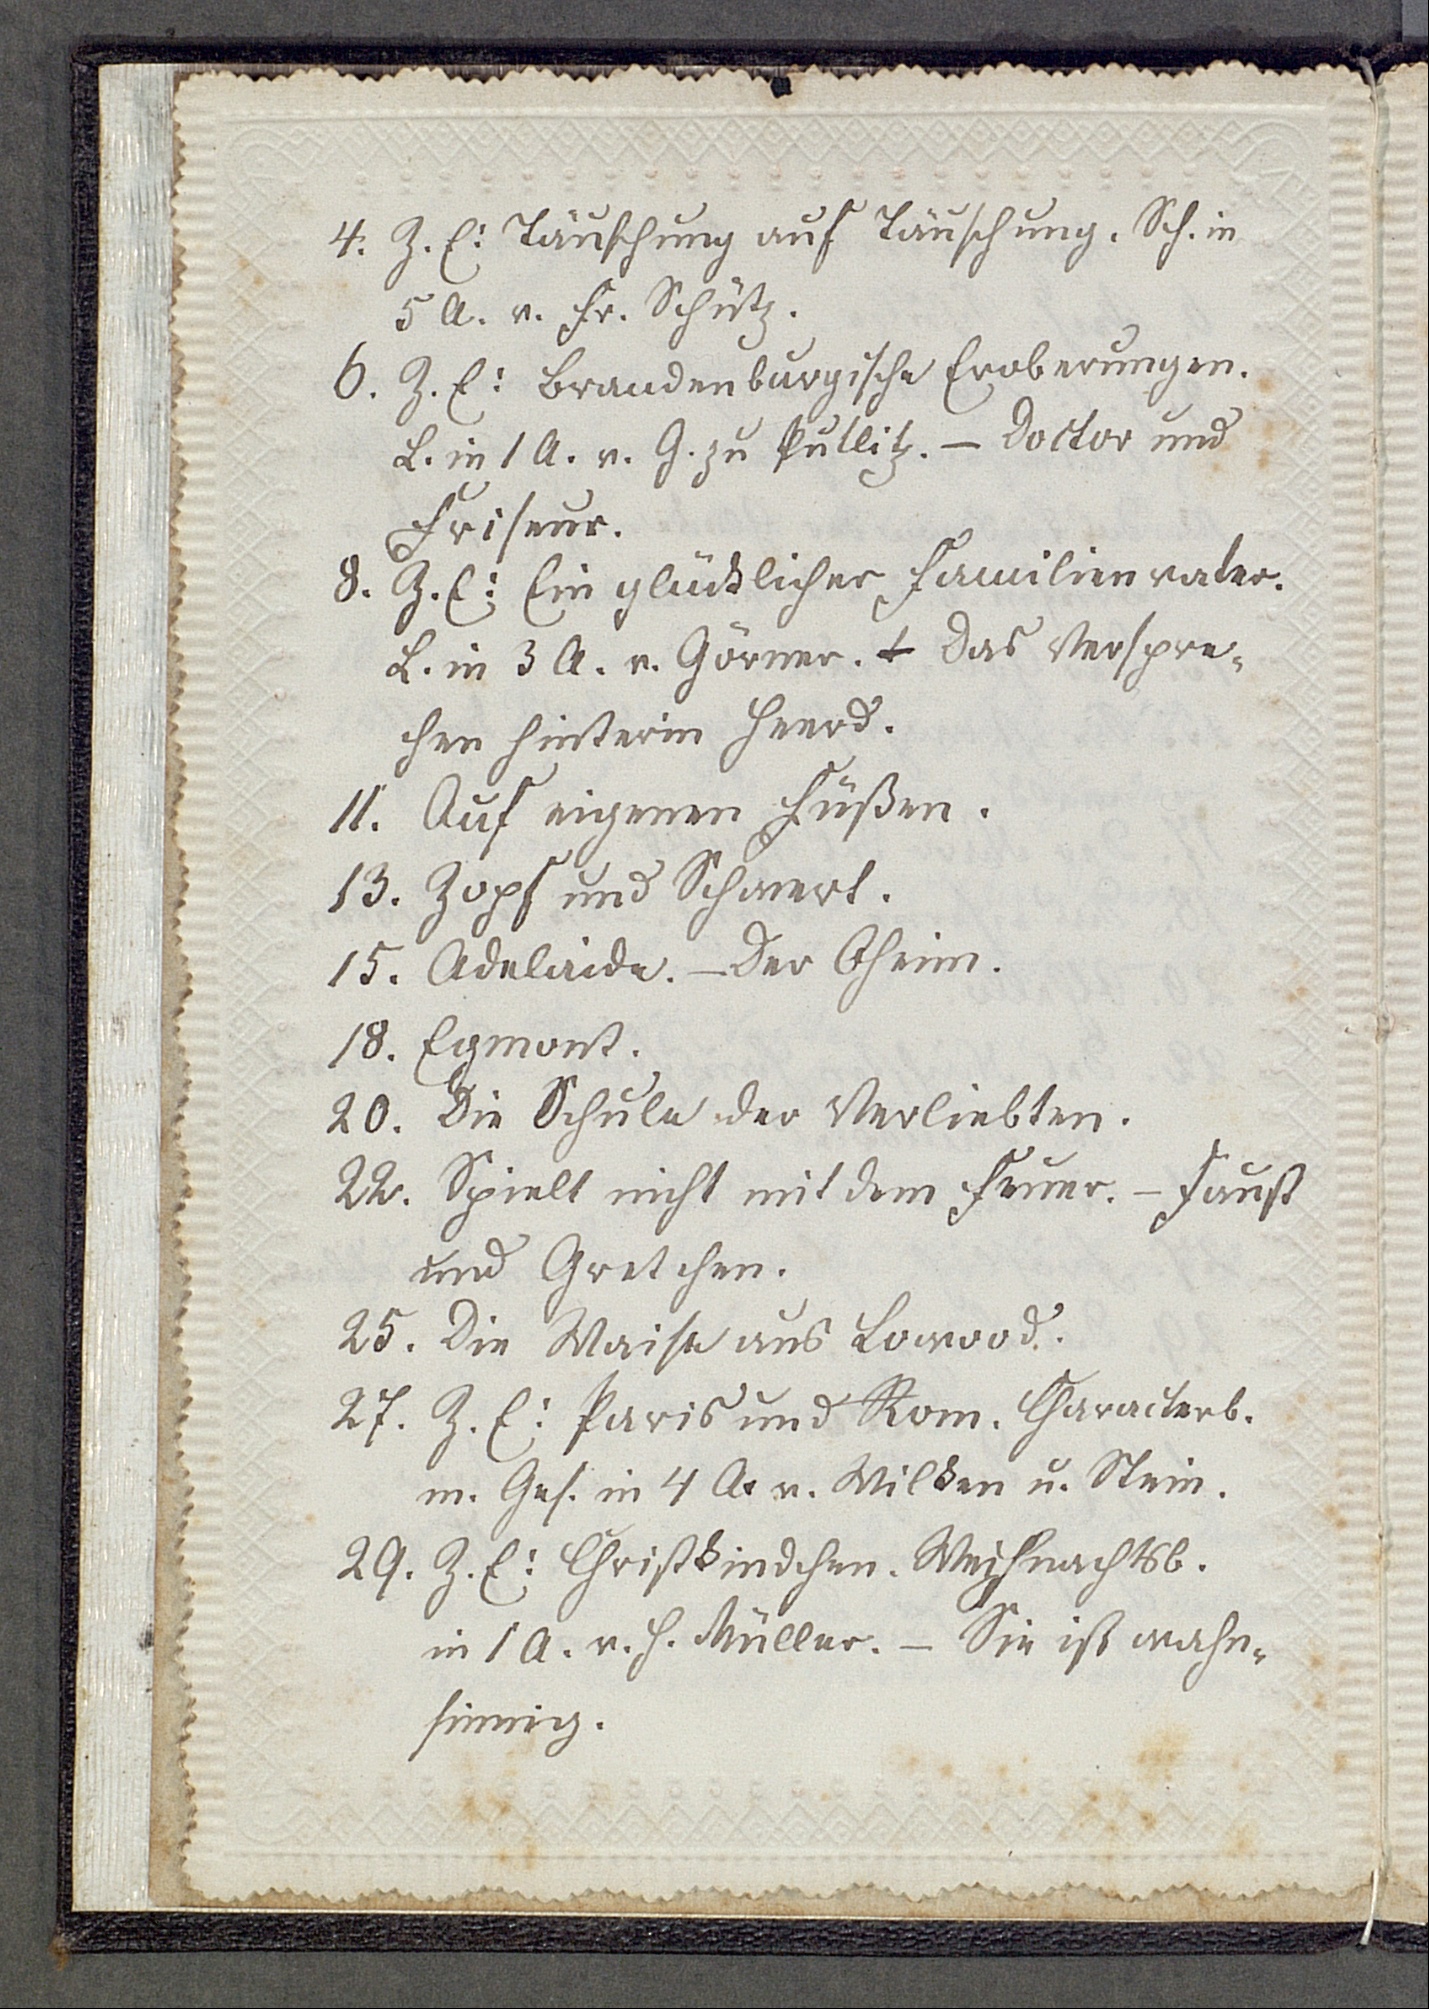 4. Z. E: Täuschung auf Täuschung. Sch. in
5 A. v. Fr. Schütz.
6. Z. E: Brandenburgische Eroberungen.
L. in 1 A. v. G. zu Putlitz. – Doctor und
Friseur.
8. Z. E: Ein glücklicher Familienvater.
L. in 3 A. v. Görner. – Das Verspre-
chen hinterm Heerd.
11. Auf eigenen Füßen.
13. Zopf und Schwert.
15. Adelaide. – Der Oheim.
18. Egmont.
20. Die Schule der Verliebten.
22. Spielt nicht mit dem Feuer. – Faust
und Gretchen.
25. Die Waise aus Lowood.
27. Z. E: Paris und Rom. Characterb.
m. Ges. in 4 A. v. Wilken u. Stein.
29. Z. E: Christkindchen. Weihnachtsb.
in 1 A. v. H. Müller. – Sie ist wahn-
sinnig.